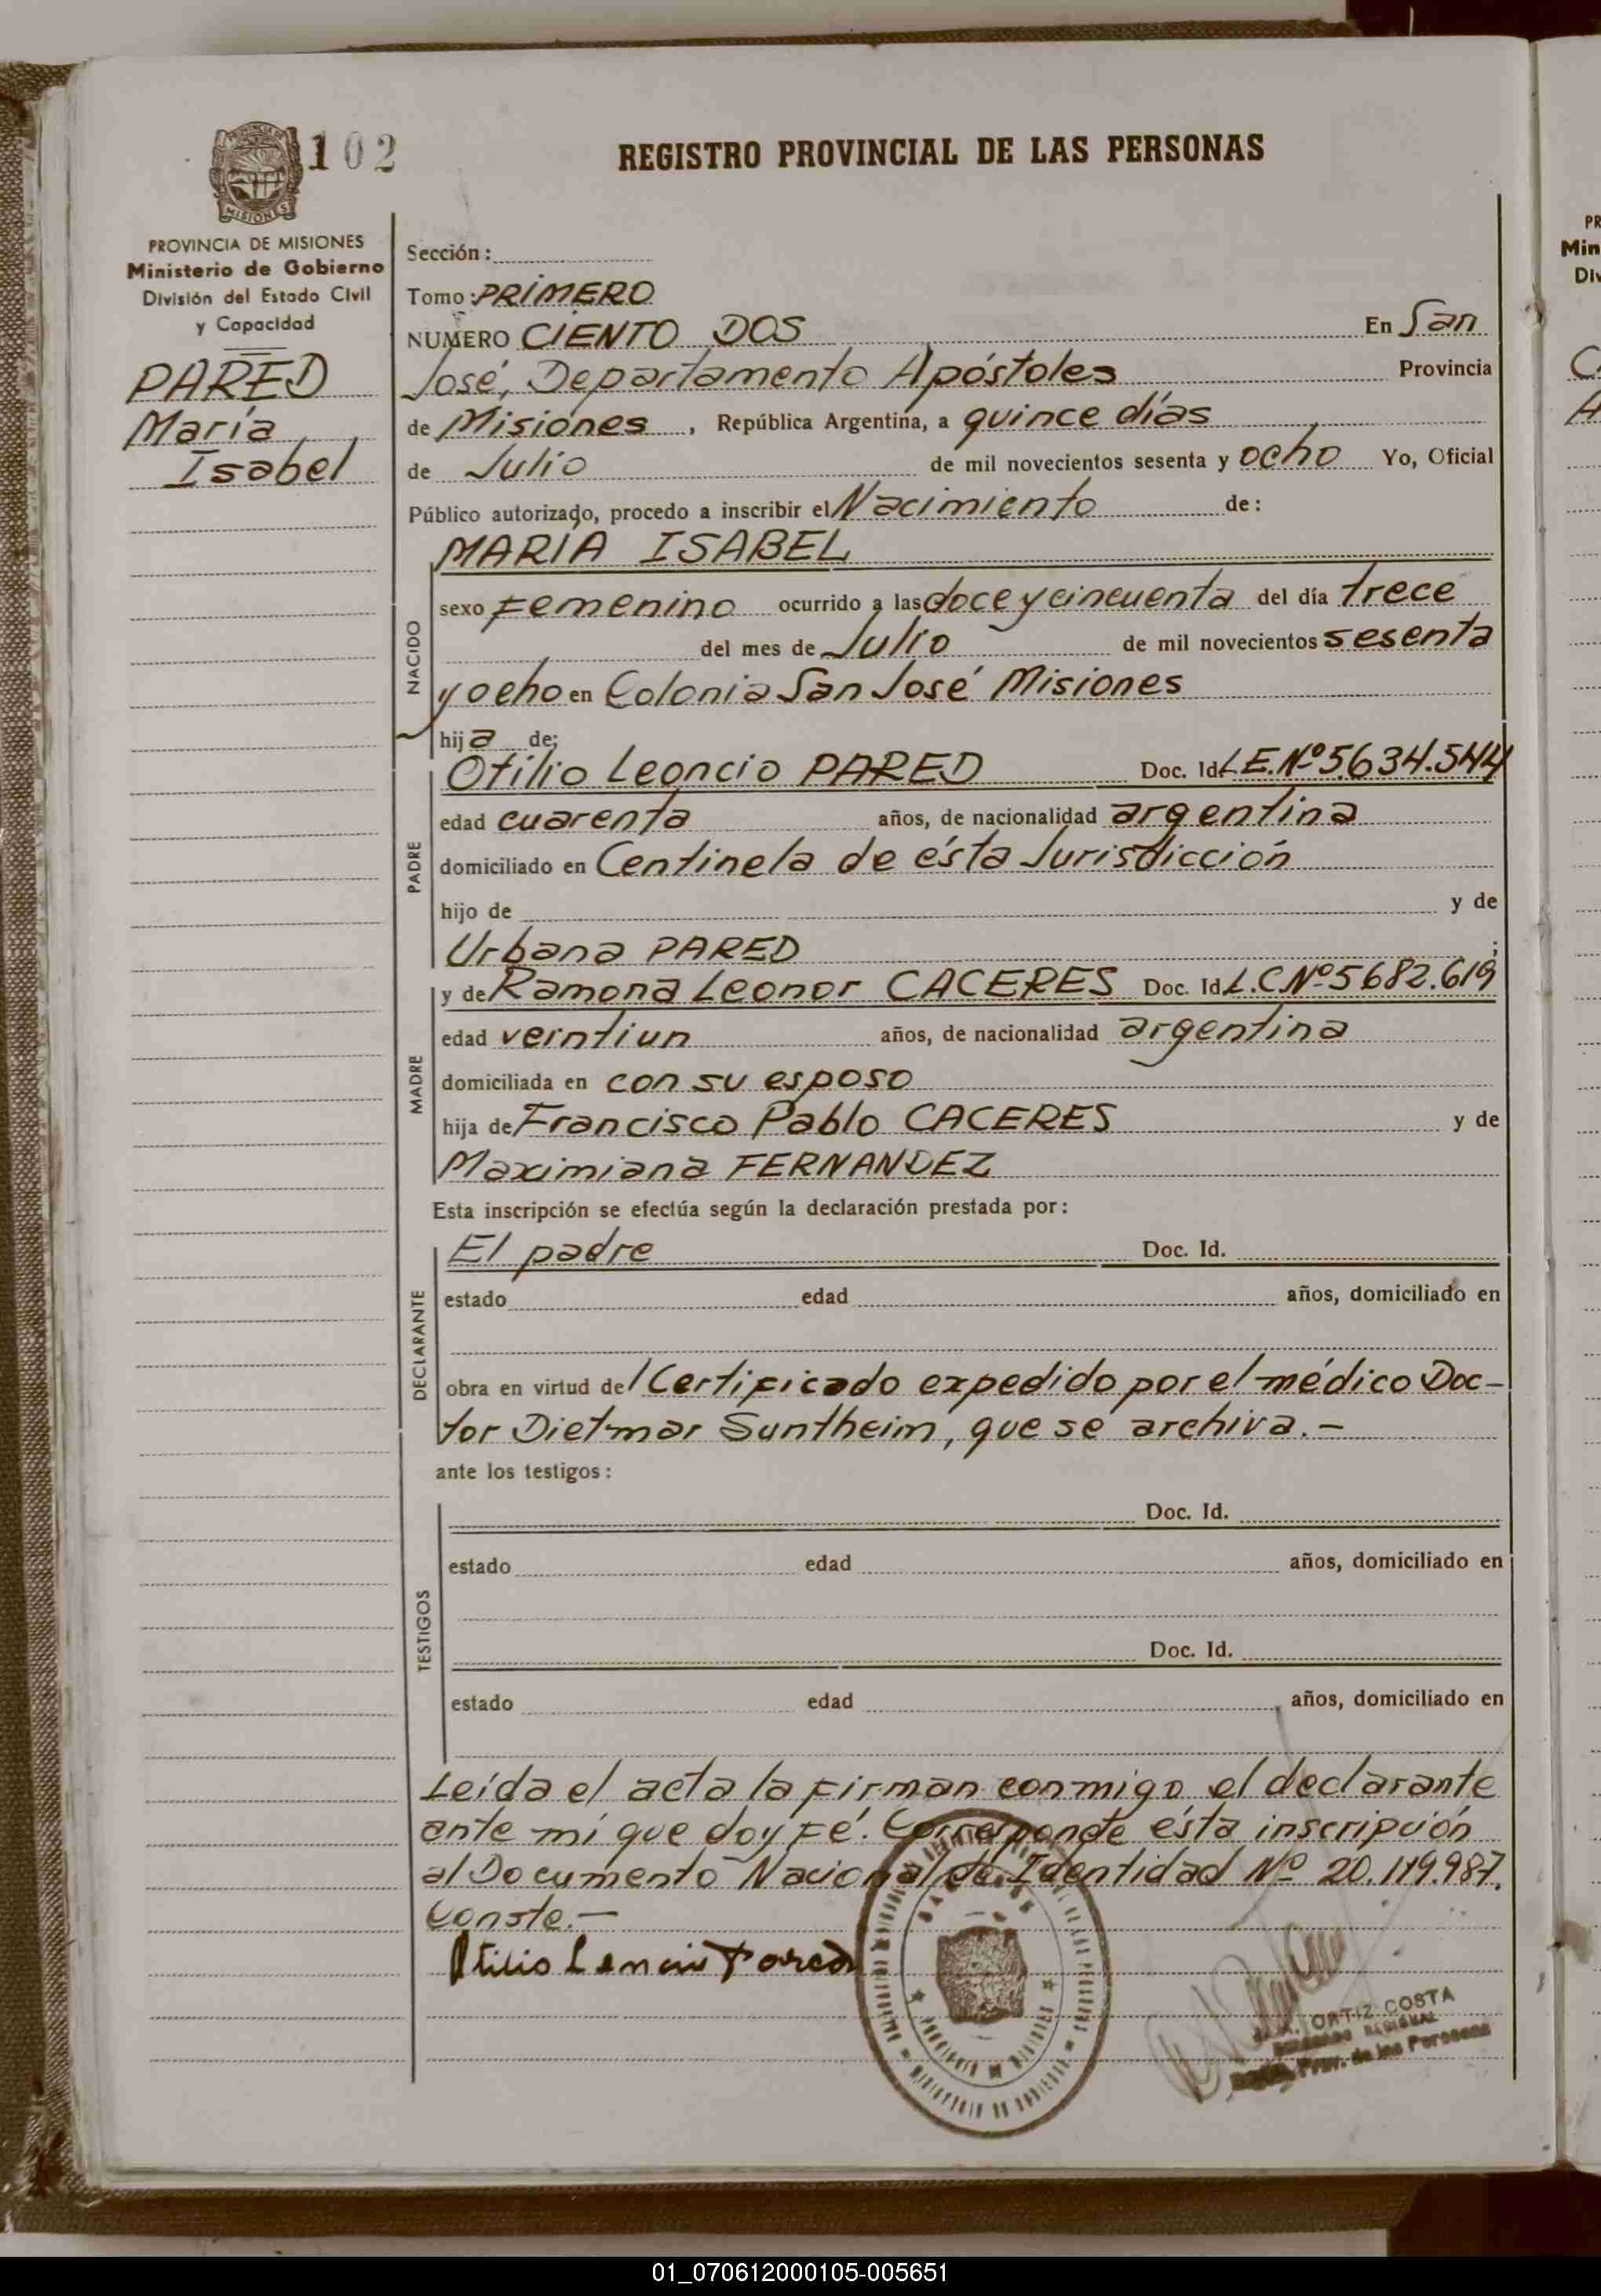 102
REGISTRO PROVINCIAL DE LAS PERSONAS
MISIONES
PROVINCIA DE MISIONES
Ministerio de Gobierno
División del Estado Civil
y Capacidad
PARED
María
Isabel
Sección:
Tomo: PRIMERO
NUMERO CIENTO DOS En San
José, Departamento Apóstoles Provincia
de Misiones, República Argentina, a quince días
de Julio de mil novecientos sesenta y ocho Yo, Oficial
Público autorizado, procedo a inscribir el Nacimiento de:
NACIDO
MARÍA ISABEL
sexo Femenino ocurrido a las doce y cincuenta del día trece
del mes de Julio de mil novecientos sesenta
y ocho en Colonia San José Misiones
hija de:
PADRE
Otilio Leoncio PARED Doc. Id. L.E.Nº 5.634.544
edad cuarenta años, de nacionalidad argentina
domiciliado en Centinela de ésta Jurisdicción
hijo de y de
Urbana PARED ;
MADRE
y de Ramona Leonor CACERES Doc. Id. L.C.Nº 5682.619
edad veintiun años, de nacionalidad argentina
domiciliada en con su esposo
hija de Francisco Pablo CACERES y de
Maximiana FERNANDEZ
Esta inscripción se efectúa según la declaración prestada por:
DECLARANTE
El padre Doc. Id.
estado edad años, domiciliado en
obra en virtud del Certificado expedido por el médico Doc-
tor Dietmar Suntheim, que se archiva.-
ante los testigos:
TESTIGOS
Doc. Id.
estado edad años, domiciliado en
Doc. Id.
estado edad años, domiciliado en
Leída el acta la firman conmigo el declarante
ante mí que doy fé. Corresponde ésta inscripción
al Documento Nacional de Identidad Nº 20.119.987.
Conste.-
Otilio Pared
ORTIZ COSTA
REGIONAL
Prov. de las Personas
PR
Min
Div
01_070612000105-005651